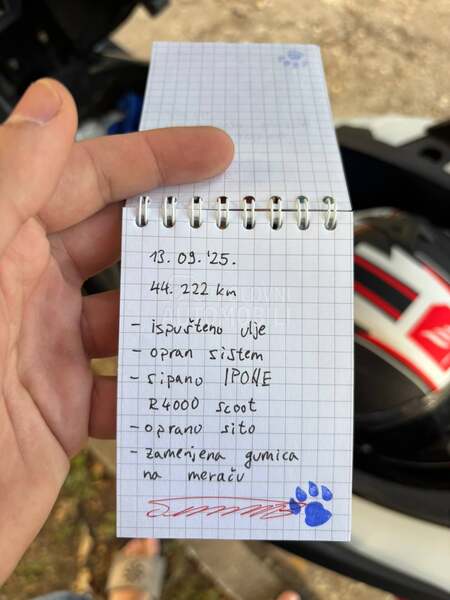 13.09.'25.
44.222 km
- ispušteno ulje
- opran sistem
- sipano IPONE
R4000 scoot
- oprano sito
- zamenjena gumica
na meraču